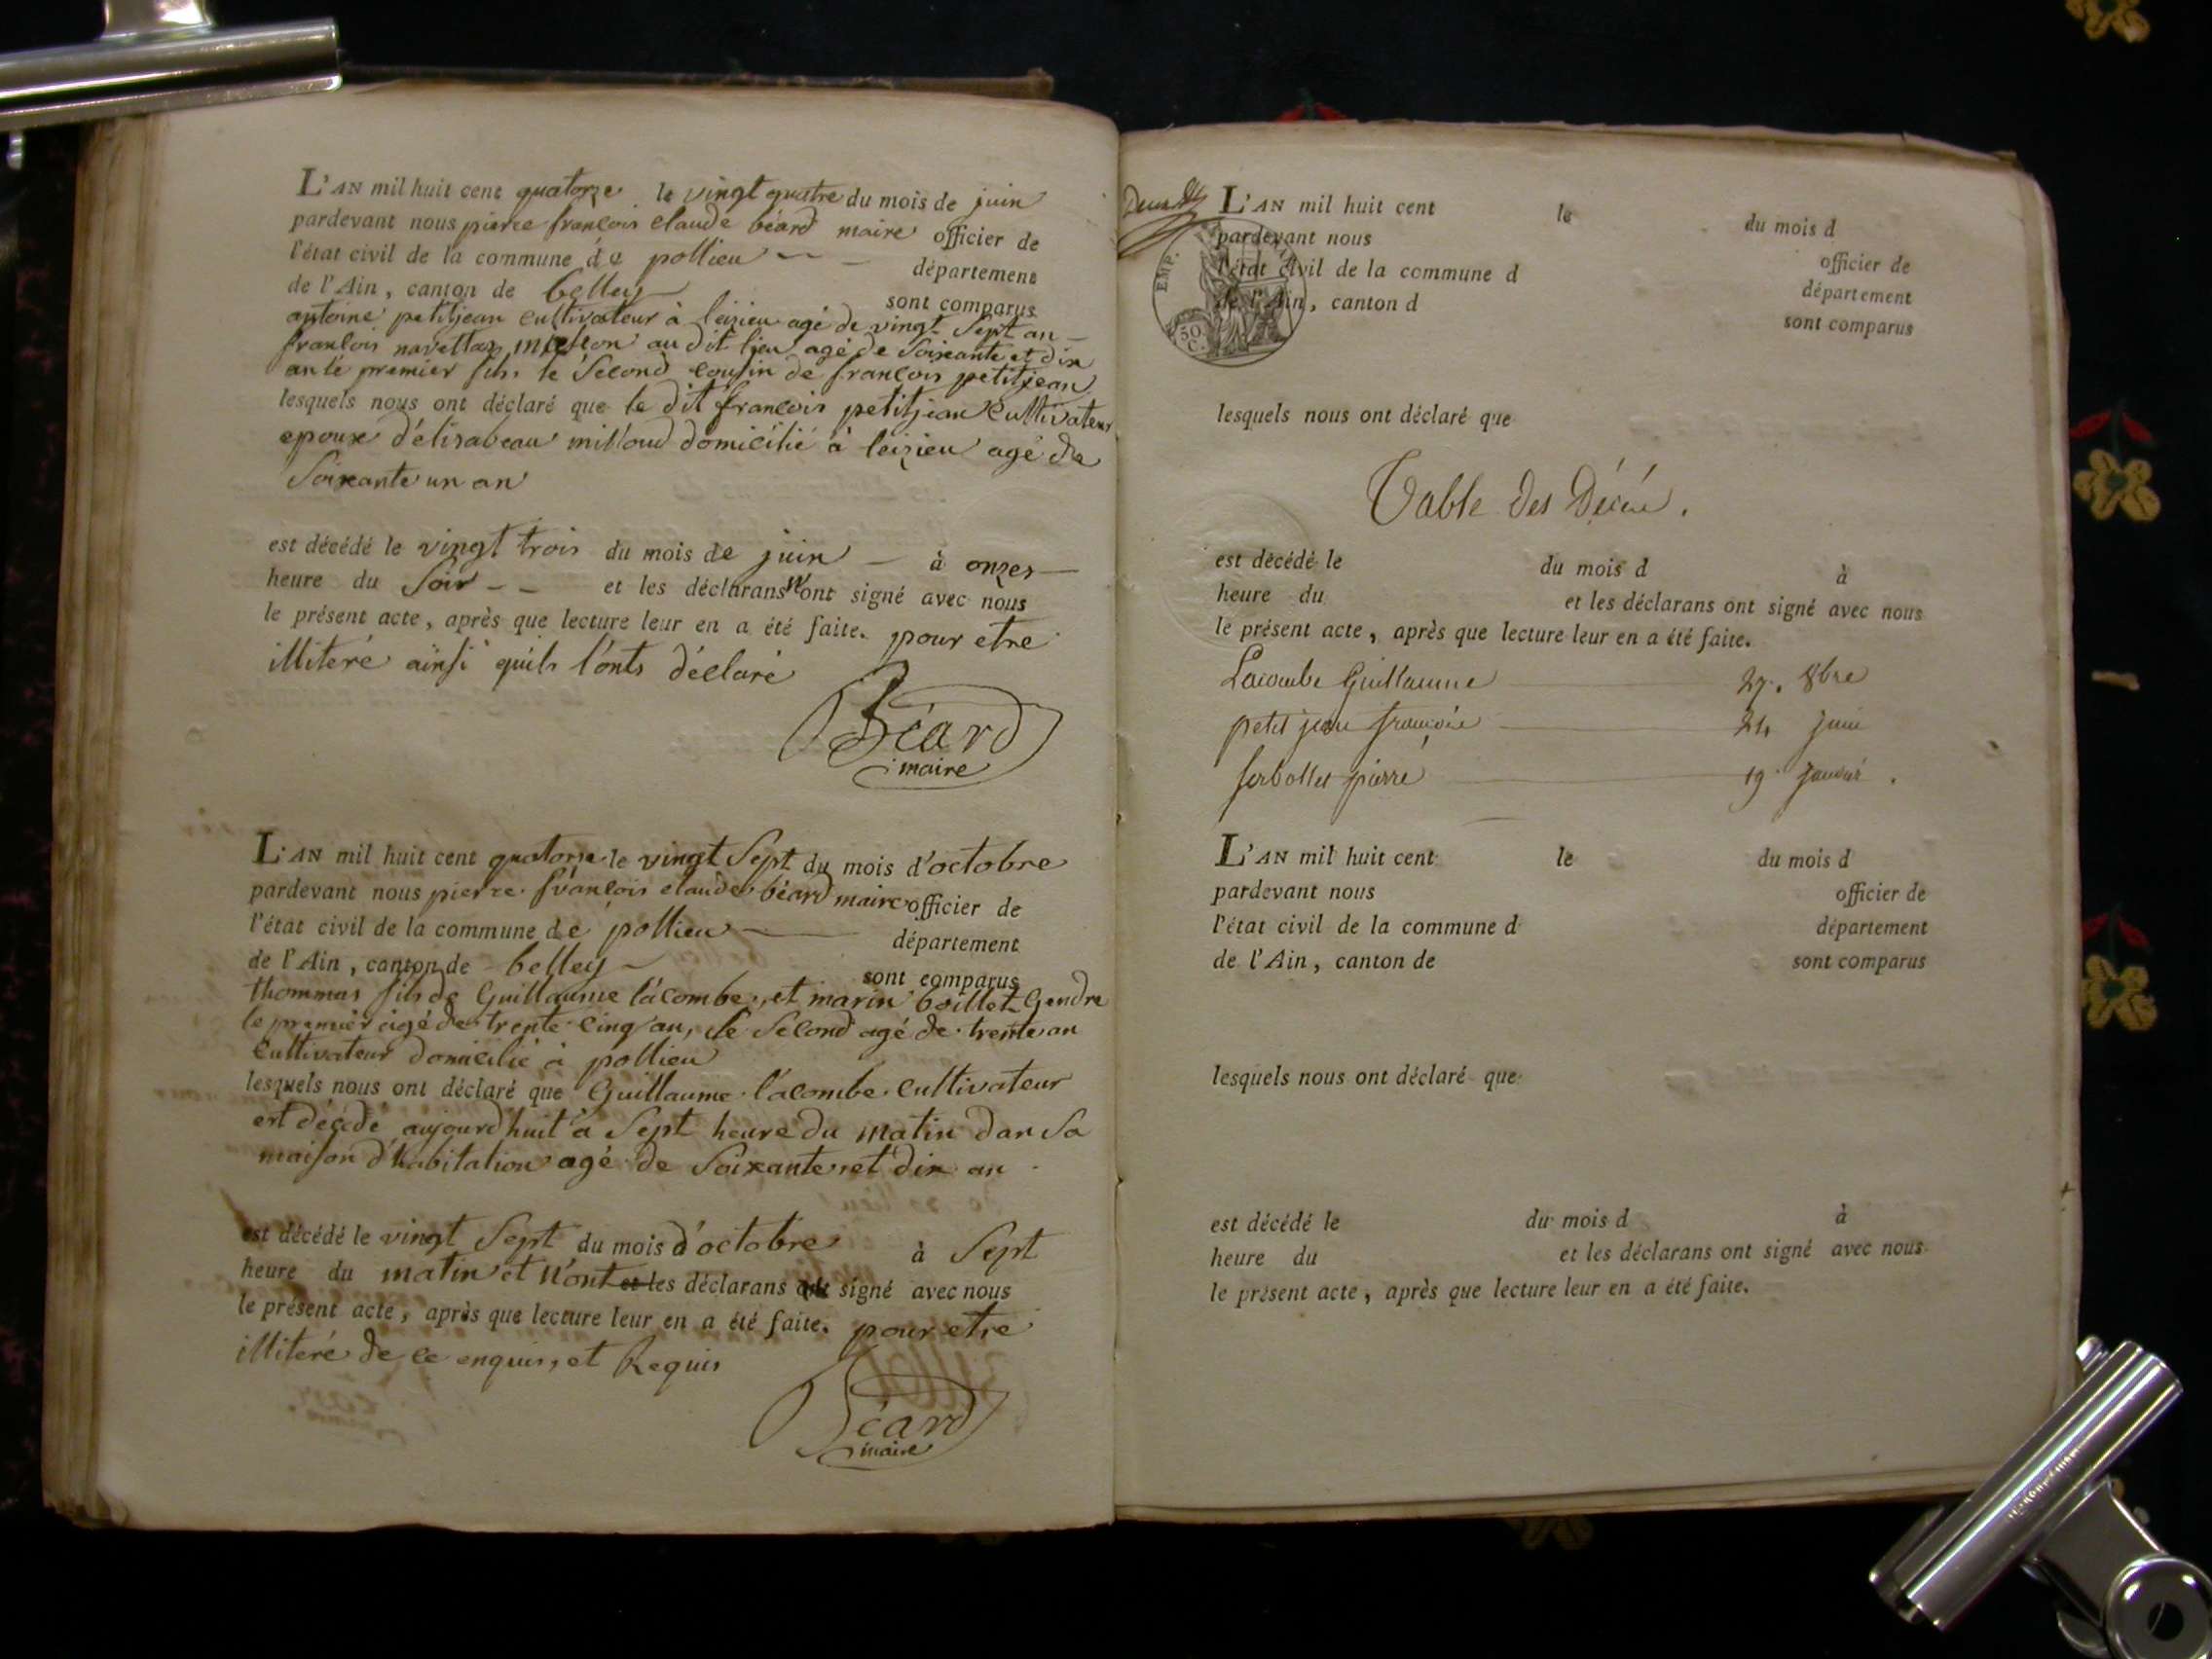 L'AN mil huit cent quatorze le vingt quatre du mois de juin
pardevant nous pierre françois claude béard maire officier de
l'état civil de la commune de pollieu département
de l'Ain, canton de belley sont comparus
antoine petitjean cultivateur à leizieu agé de vingt Sept an
françois navettaz maçon au dit lieu agé de Soixante et dix
an le premier fils le Second cousin de françois petitjean
lesquels nous ont déclaré que le dit françois petitjean Cultivateur
epoux d'élisabeau milloud domicilié à leizieu agé de
Soixante un an
est décédé le vingt trois du mois de juin à onzes
heure du Soir et les déclarans n'ont signé avec nous
le présent acte, après que lecture leur en a été faite. pour etre
illiteré ainsi quils l'onts déclaré
Béard
maire
L'AN mil huit cent quatorze le vingt Sept du mois d'octobre
pardevant nous pierre françois claude béard maire officier de
l'état civil de la commune de pollieu département
de l'Ain, canton de belley sont comparus
thommas fils de Guillaume lacombe, et marin boillet Gendre
le premier agé de trente cinq an, le Second agé de trente an
Cultivateur domicilié à pollieu
lesquels nous ont déclaré que Guillaume lacombe Cultivateur
est décédé aujourdhuit à Sept heure du matin dan Sa
maison d'habitation agé de Soixante et dix an
est décédé le vingt Sept du mois d'octobre à Sept
heure du matin et n'ont et les déclarans ont signé avec nous
le présent acte, après que lecture leur en a été faite. pour etre
illiteré de ce enquis, et Requis
Béard
maire
L'AN mil huit cent le du mois d
pardevant nous officier de
l'état civil de la commune d département
de l'Ain, canton d sont comparus
EMP.
50
C.
lesquels nous ont déclaré que
Table des Décès.
est décédé le du mois d à
heure du et les déclarans ont signé avec nous
le présent acte, après que lecture leur en a été faite.
Lacombe Guillaume 27. 8bre
petit jean françois 24 juin
Serbollet pierre 19 janvier.
L'AN mil huit cent le du mois d
pardevant nous officier de
l'état civil de la commune d département
de l'Ain, canton de sont comparus
lesquels nous ont déclaré que
est décédé le du mois d à
heure du et les déclarans ont signé avec nous
le présent acte, après que lecture leur en a été faite.